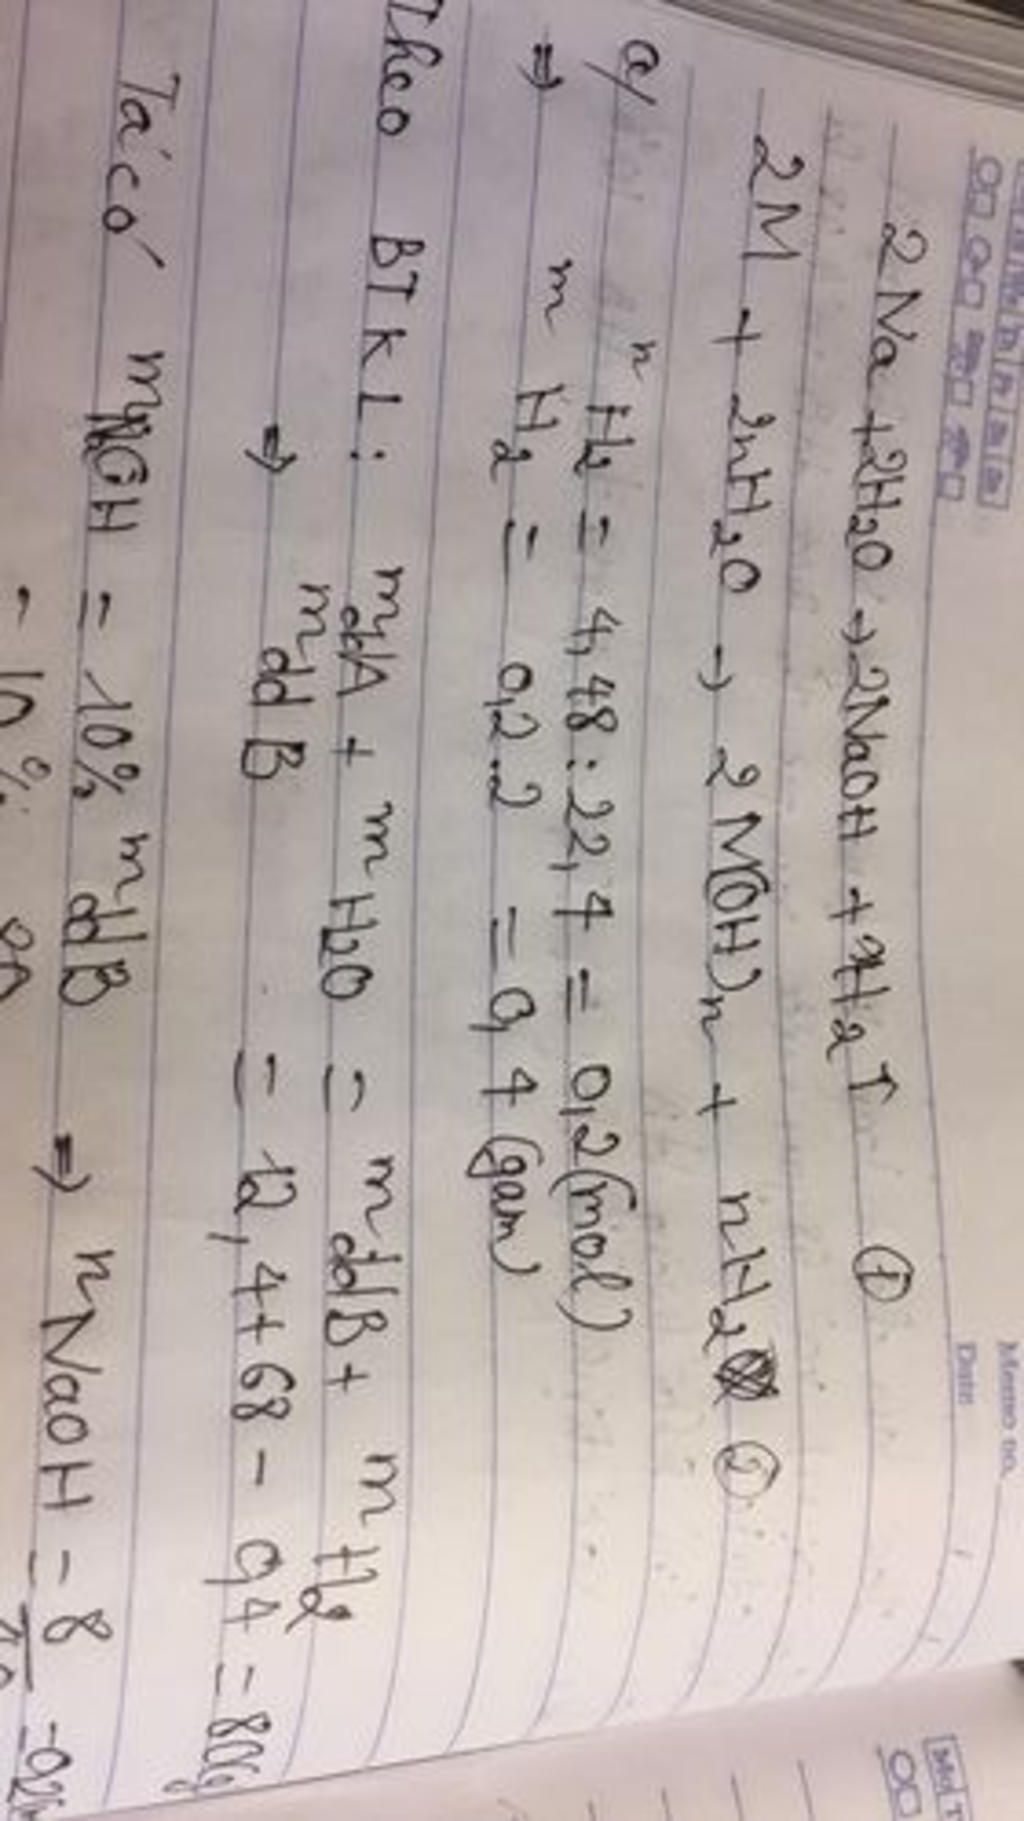 Memo no.
Date
2Na + 2H2O → 2NaOH + H2↑ ①
2M + 2nH2O → 2M(OH)n + nH2 ②
a/ nH2 = 4,48 : 22,4 = 0,2 (mol)
⇒ mH2 = 0,2.2 = 0,4 (gam)
Theo BTKL: mddA + mH2O = mddB + mH2
⇒ mddB = 12,4 + 68 - 0,4 = 80(g)
Ta có mNaOH = 10% mddB ⇒ nNaOH = 8
= 10% 80